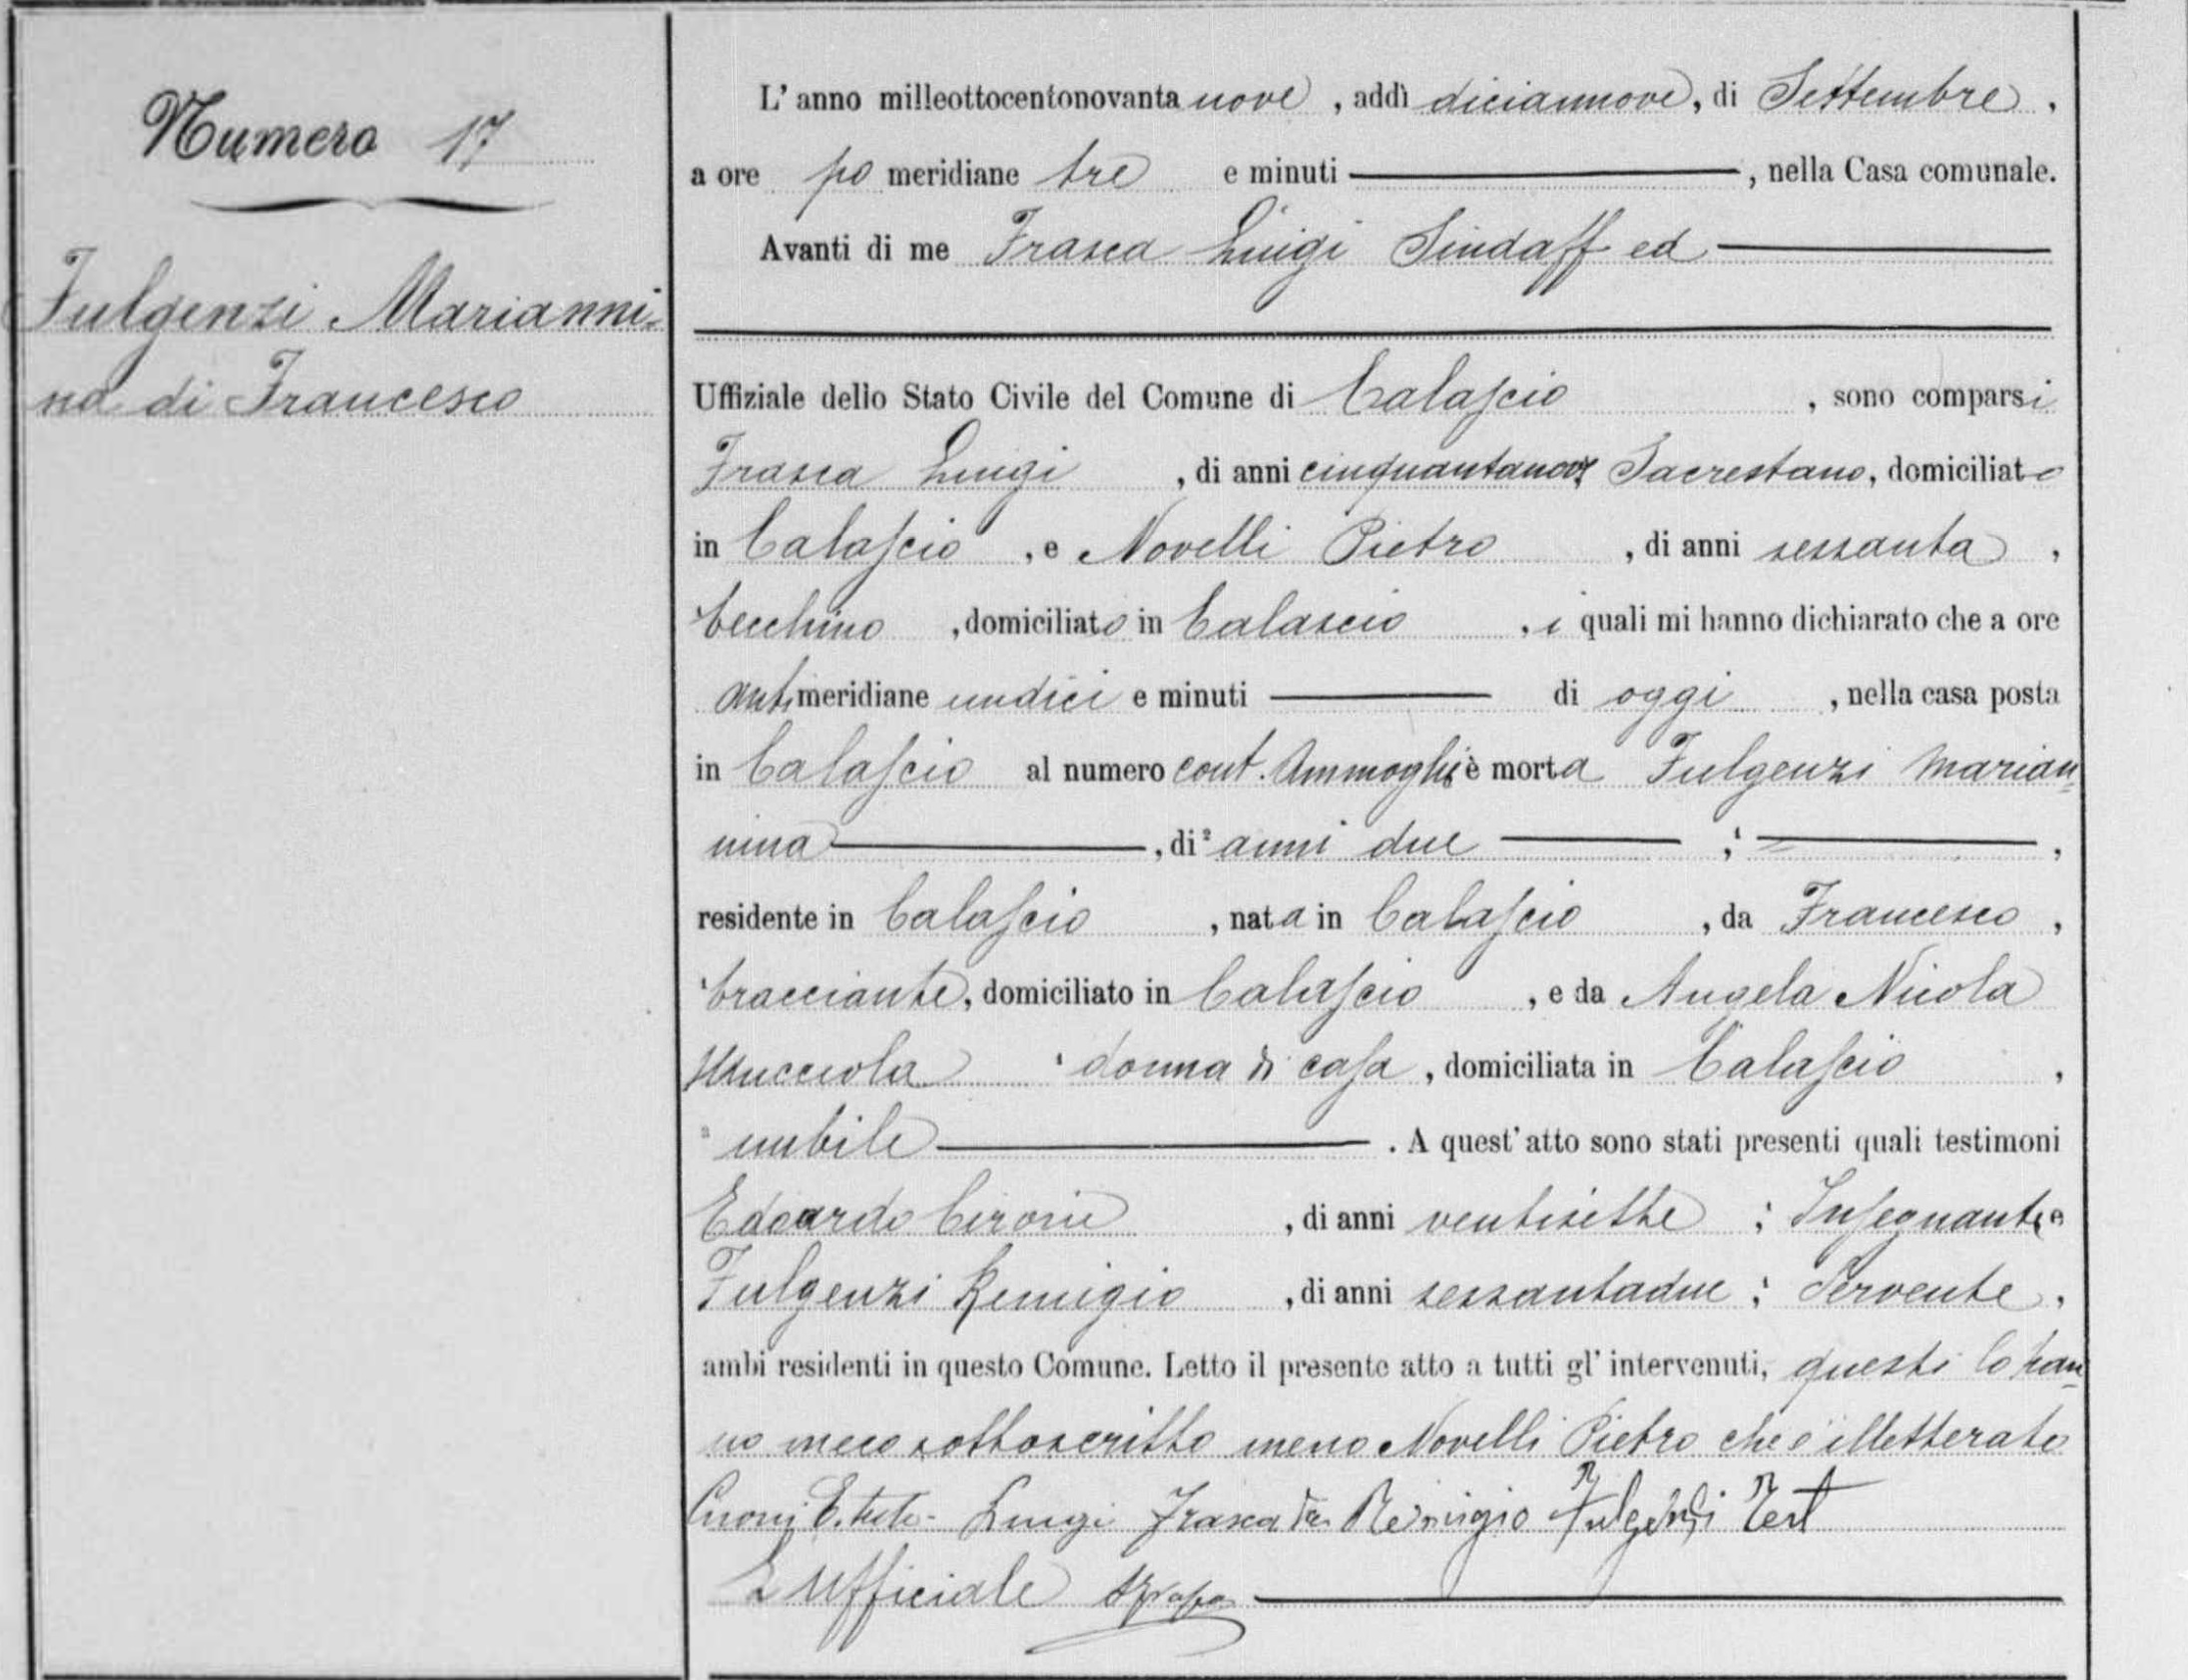 Numero 17
Fulgenzi Marianni=
na di Francesco
L'anno milleottocentonovanta nove, addì diciannove, di Settembre,
a ore po meridiane tre e minuti ———, nella Casa comunale.
Avanti di me Frasca Luigi Sindaff ed ———
Uffiziale dello Stato Civile del Comune di Calascio, sono comparsi
Frasca Luigi, di anni cinquantanove Sacrestano, domiciliato
in Calascio, e Novelli Pietro, di anni sessanta,
becchino, domiciliato in Calascio, i quali mi hanno dichiarato che a ore
antimeridiane undici e minuti ——— di oggi, nella casa posta
in Calascio al numero cont. è morta Fulgenzi Marian=
nina ———, di anni due ——— ; ———,
residente in Calascio, nata in Calascio, da Francesco,
bracciante, domiciliato in Calascio, e da Angela Nicola
Mucciola donna di casa, domiciliata in Calascio,
nubile ———. A quest'atto sono stati presenti quali testimoni
Edoardo Cironi, di anni ventisette; Insegnante e
Fulgenzi Remigio, di anni sessantadue; Servente,
ambi residenti in questo Comune. Letto il presente atto a tutti gl'intervenuti, questi lo han=
no meco sottoscritto meno Novelli Pietro che è illetterato
E. Luigi Frasca Remigio Fulgenzi Test
L'Ufficiale